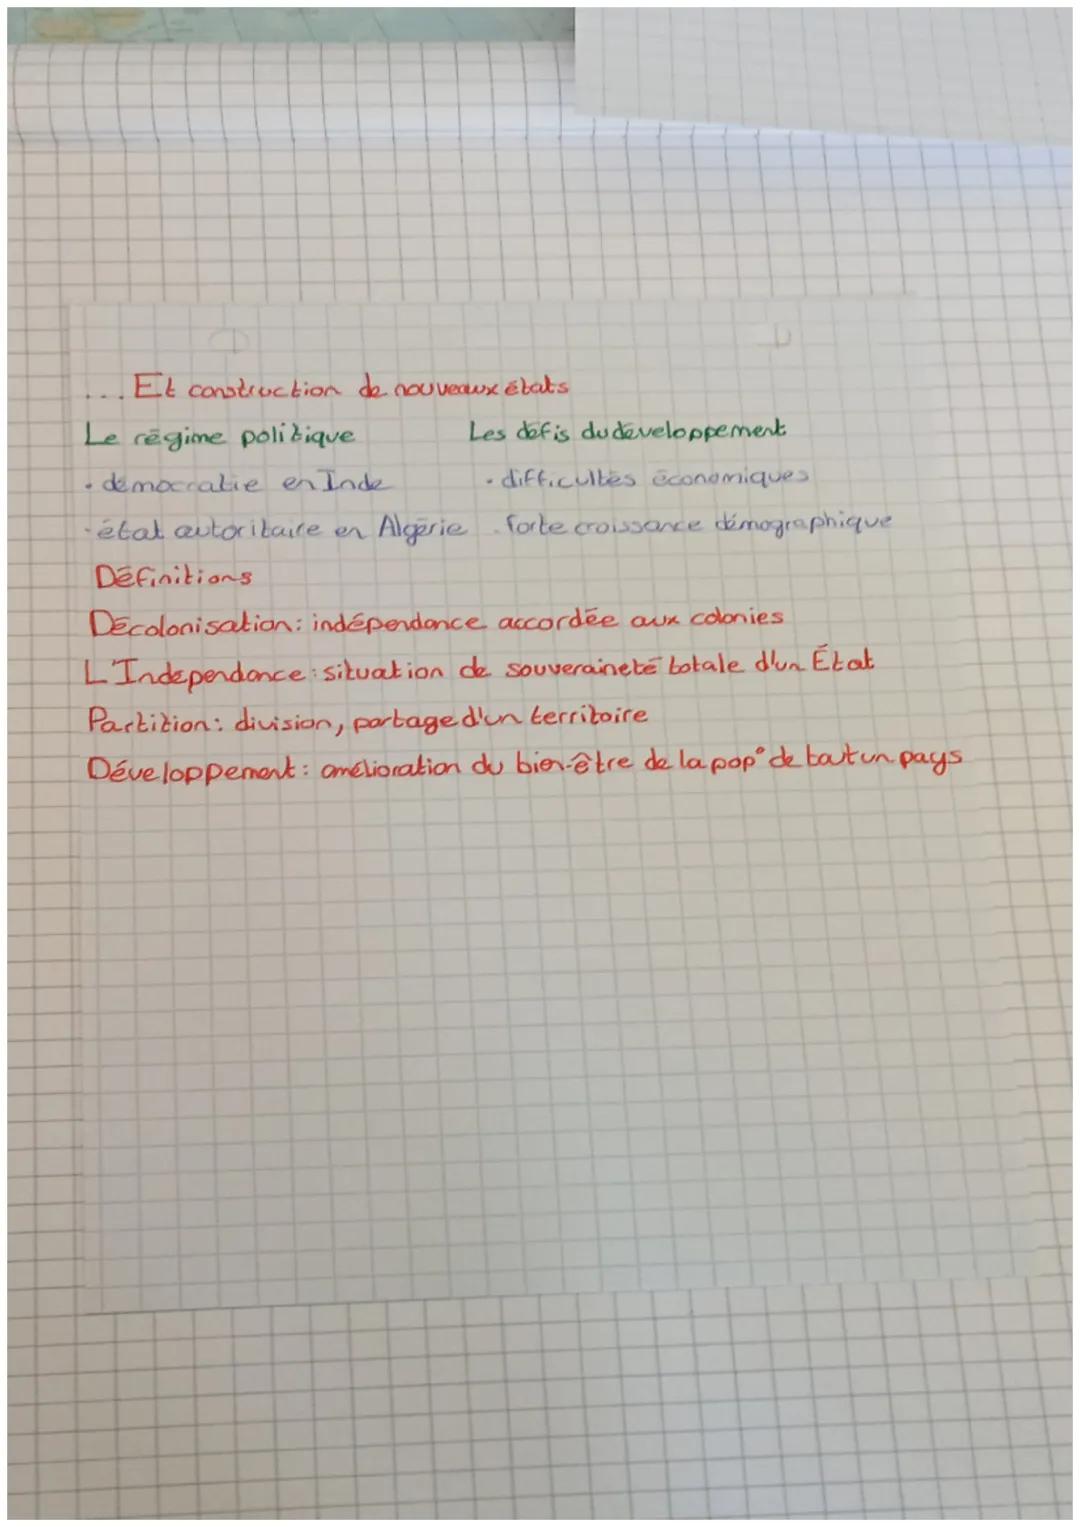 ... Et construction de nouveaux états
Le régime politique Les défis du développement
• démocratie en Inde • difficultés économiques
• état autoritaire en Algérie • forte croissance démographique
Définitions
Décolonisation: indépendance accordée aux colonies
L'Indépendance: situation de souveraineté totale d'un État
Partition: division, partage d'un territoire
Développement: amélioration du bien-être de la pop° de tout un pays